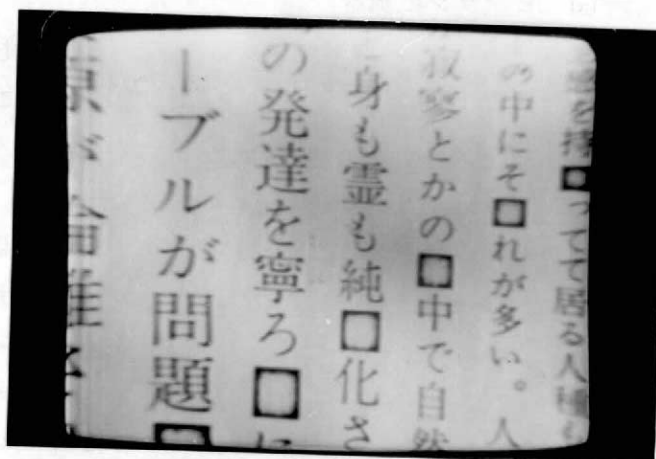 を持□ってて居る人種
の中にそ□れが多い。人
寂寥とかの□中で自然
身も霊も純□化さ
の発達を寧ろ□に
ーブルが問題□